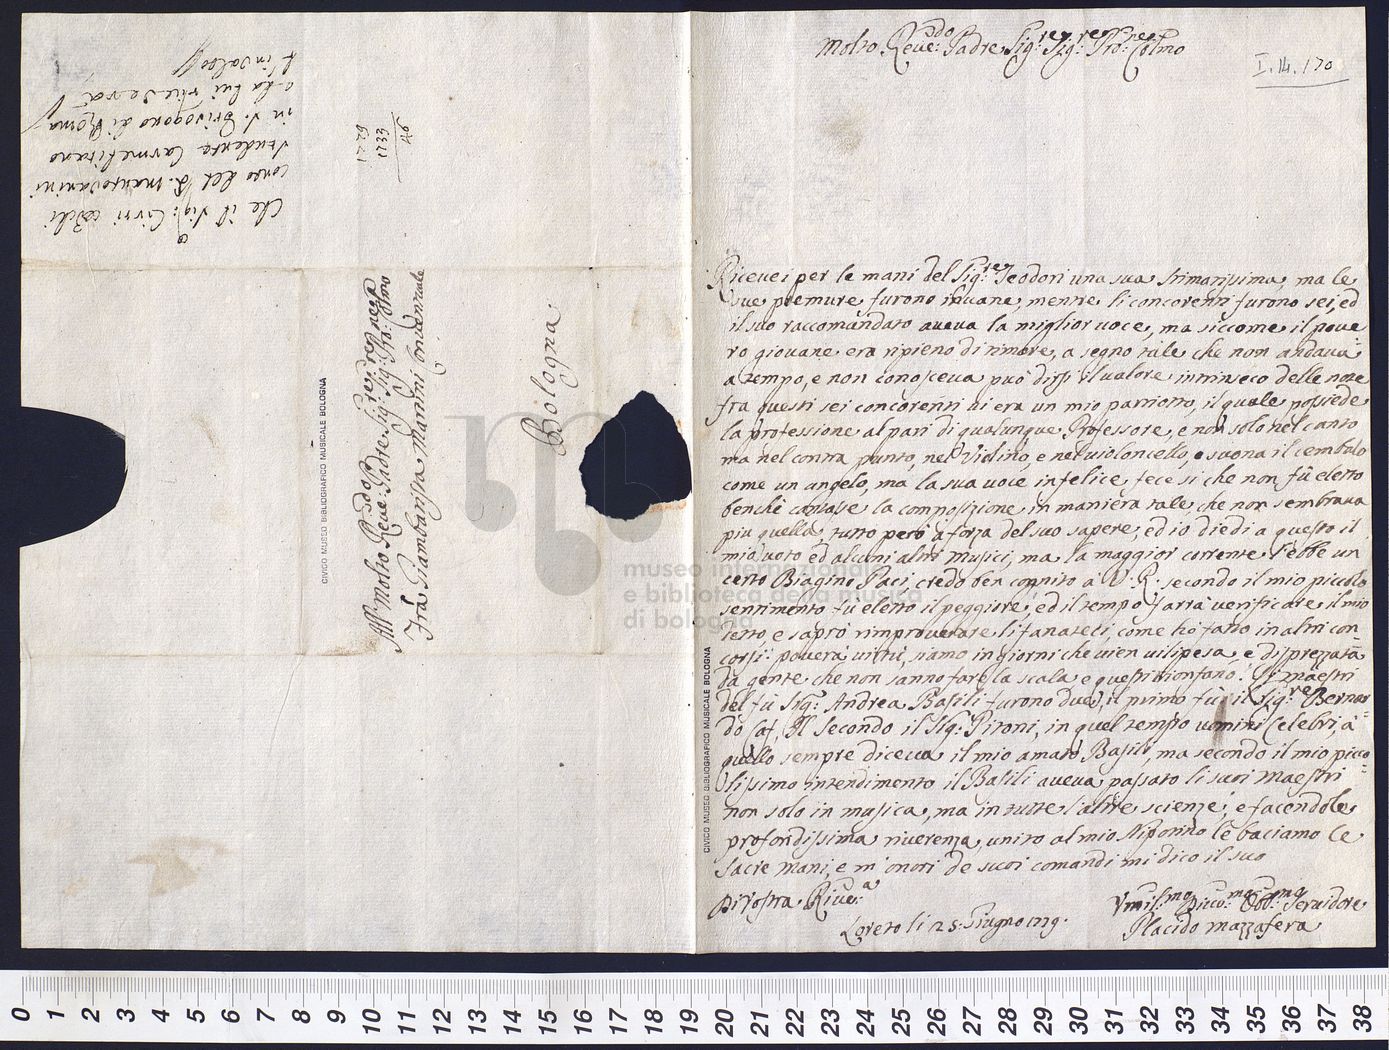 Molto Reve:do Padre Sig:re Sig:re Pro: Colmo
I. 14. 170
Ricevei per le mani del Sig:re Teodori una sua stimatissima, ma le
sue premure furono invane, mentre li concorenti furono sei, ed
il suo raccomandato aveva la miglior voce, ma siccome il pove
ro giovane era ripieno di timore, a segno tale che non andava
a tempo, e non conosceva può dirsi il valore intrinseco delle note
fra questi sei concorenti vi era un mio patriotto, il quale possiede
la professione al pari di qualunque Professore, e non solo nel canto
ma nel contra punto, nel Violino, e nel violoncello, e suona il cembalo
come un angelo, ma la sua voce infelice fece si che non fù eletto
benchè cantasse la composizione in maniera tale che non sembrava
piu quella, tutto però a forza del suo sapere, ed io diedi a questo il
mio voto ed alcuni altri Musici, ma la maggior corrente l'ebbe un
certo Biagino Paci, credo ben cognito à V: R: secondo il mio piccolo
sentimento fù eletto il peggiore, ed il tempo farrà verificare il mio
detto e saprò rimproverare li fanatici, come hò fatto in altri con
corsi: povera virtù, siamo in giorni che vien vilipesa, e disprezzata
da gente che non sanno fare la scala e questi trionfano! Li maestri
del fù Sig: Andrea Basili furono due, il primo fù il Sig:re Bernar
do Caf, Il secondo il Sig: Pitoni, in quel tempo uomini Celebri, à
quello sempre diceva il mio amato Basili, ma secondo il mio picco
lissimo intendimento il Basili aveva passato li suoi Maestri
non solo in musica, ma in tutte l'altre scienze; e facendole
profondissima riverenza unito al mio Nipotino le baciamo le
Sacre Mani, e m'onori de suoi comandi mi dico il suo
Di Vostra River:a
Vmil:mo Divo:mo Obb:mo Servidore
Loreto li 25: Giugno 1779.
Placido Mazzafera
All Molto Reve:do Padre Sig:re Sig: Pro: Colmo
Frà Giambattista Martini Conventuale
Bologna
Che il Sig:
del P: Mantovanini
studente Carmelitano
in S. Grisogono di Roma
a la lui
1779
1733
46
CIVICO MUSEO BIBLIOGRAFICO MUSICALE BOLOGNA
CIVICO MUSEO BIBLIOGRAFICO MUSICALE BOLOGNA
museo internazionale
e biblioteca della musica
di bologna
0 1 2 3 4 5 6 7 8 9 10 11 12 13 14 15 16 17 18 19 20 21 22 23 24 25 26 27 28 29 30 31 32 33 34 35 36 37 38